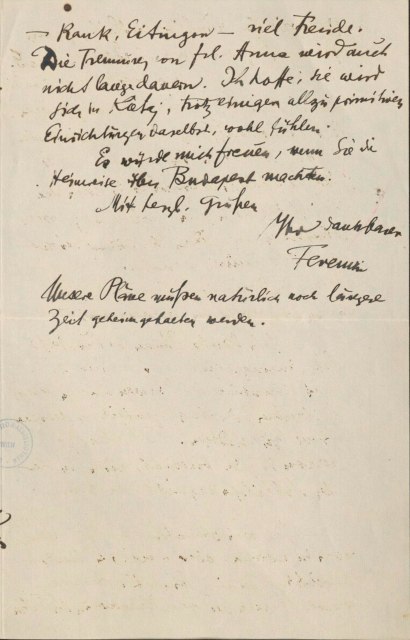 – Rank, Eitingon – viel Freude.
Die Trennung von Frl. Anna wird auch
nicht lange dauern. Ich hoffe, sie wird
sich in Kátaj, trotz einigen allzu primitiven
Einrichtungen daselbst, wohl fühlen.
Es würde mich freuen, wenn Sie die
Heimreise über Budapest machten.
Mit herzl. Grüßen
Ihr dankbarer
Ferenczi
Unsere Pläne müßen natürlich noch längere
Zeit geheimgehalten werden.